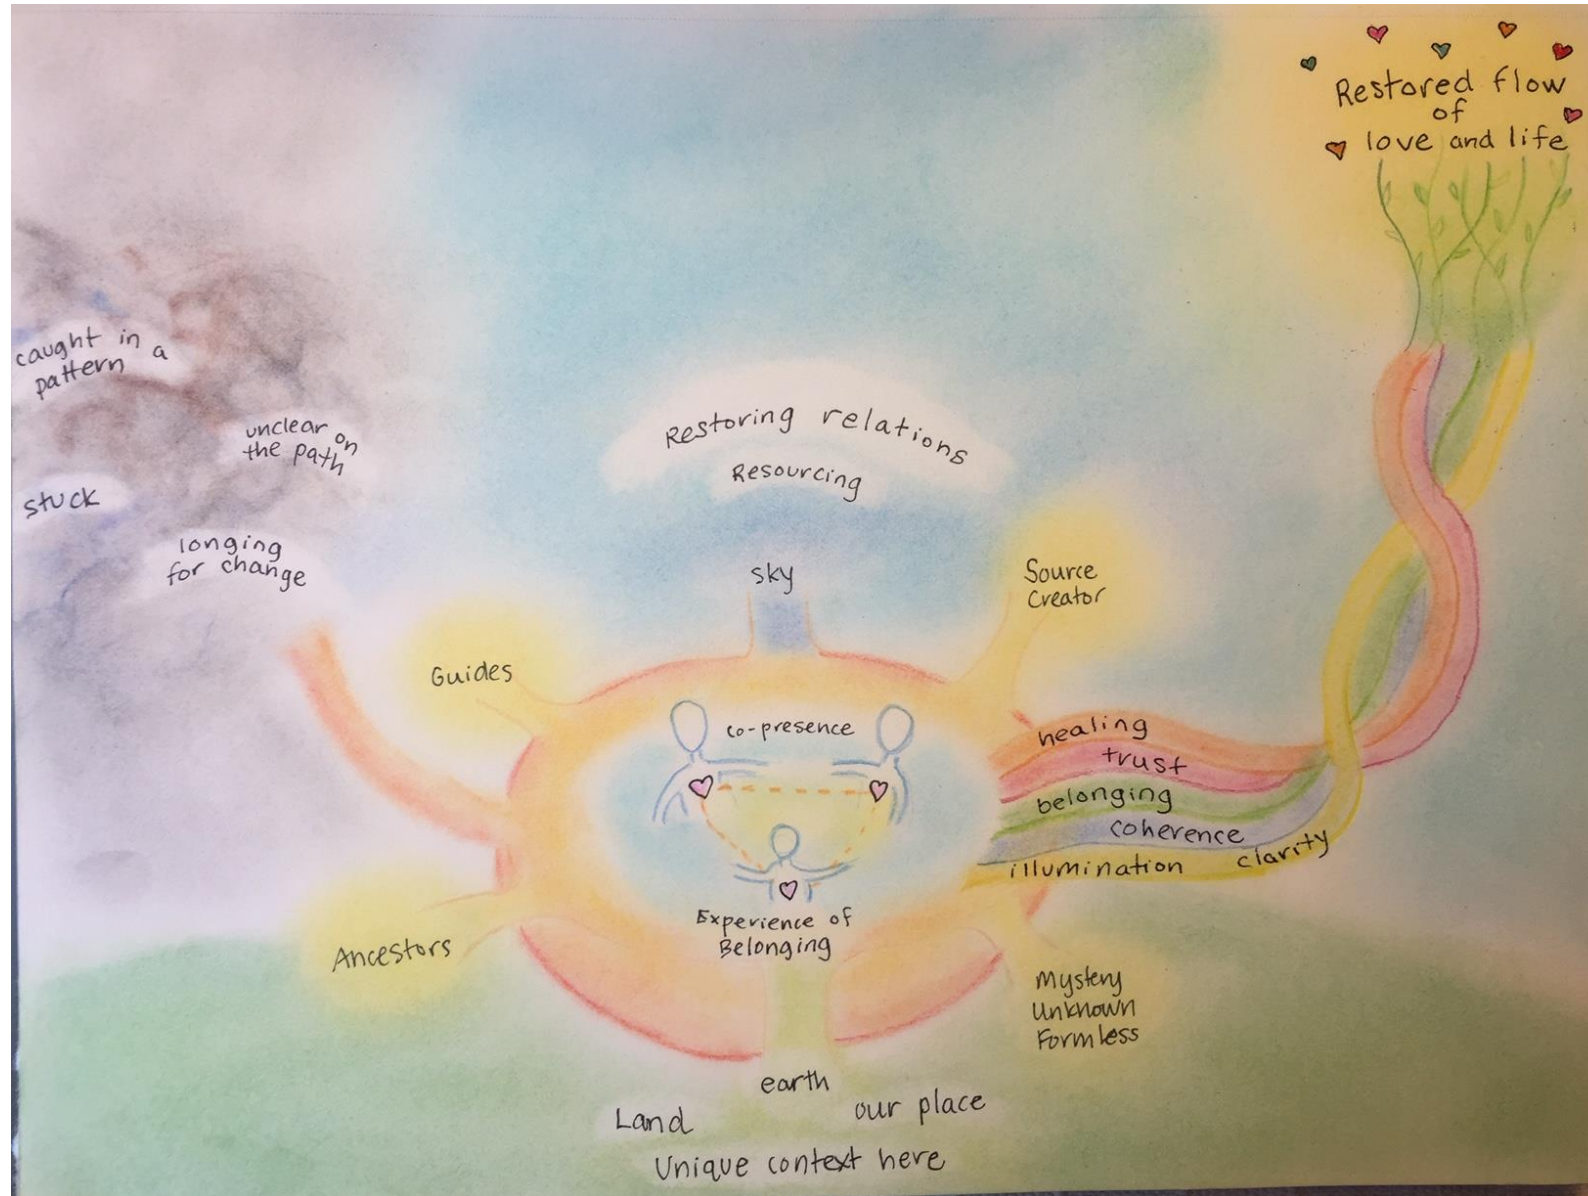 Restored flow
of
love and life
caught in a
pattern
unclear on
the path
stuck
longing
for change
Restoring relations
Resourcing
sky
Source
Creator
Guides
co-presence
Experience of
Belonging
healing
trust
belonging
coherence
illumination clarity
Ancestors
Mystery
Unknown
Formless
earth
Land
our place
Unique context here